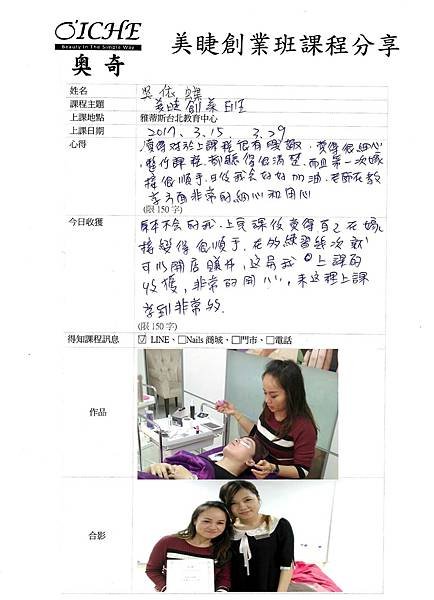 O'ICHE
Beauty In The Simple Way
奧奇
美睫創業班課程分享
姓名 吳依
課程主題 美睫創業班
上課地點 雅蒂斯台北教育中心
上課日期 2017. 3.15. 3.29
心得 覺得對於上課程很有興趣,覺得很細心
整個課程都聽得很清楚,而且第一次嫁
接很順手,日後我會好好加油,老師在教
學方面非常的細心和用心
(限 150 字)
今日收獲 原本不會的我,上完課後覺得自己在嫁
接變得很順手,在多練習幾次就
可以開店賺錢,這是我上課的
收獲,非常的開心,來這裡上課
學到非常多
(限 150 字)
得知課程訊息 ☑ LINE、□Nails 商城、□門市、□電話
作品
合影